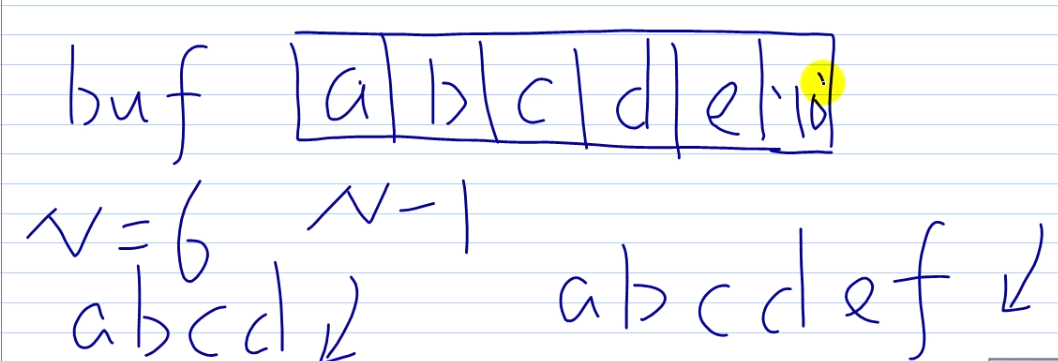 buf a b c d e '\0'
N=6 N-1
abcd↙ abcdef↙